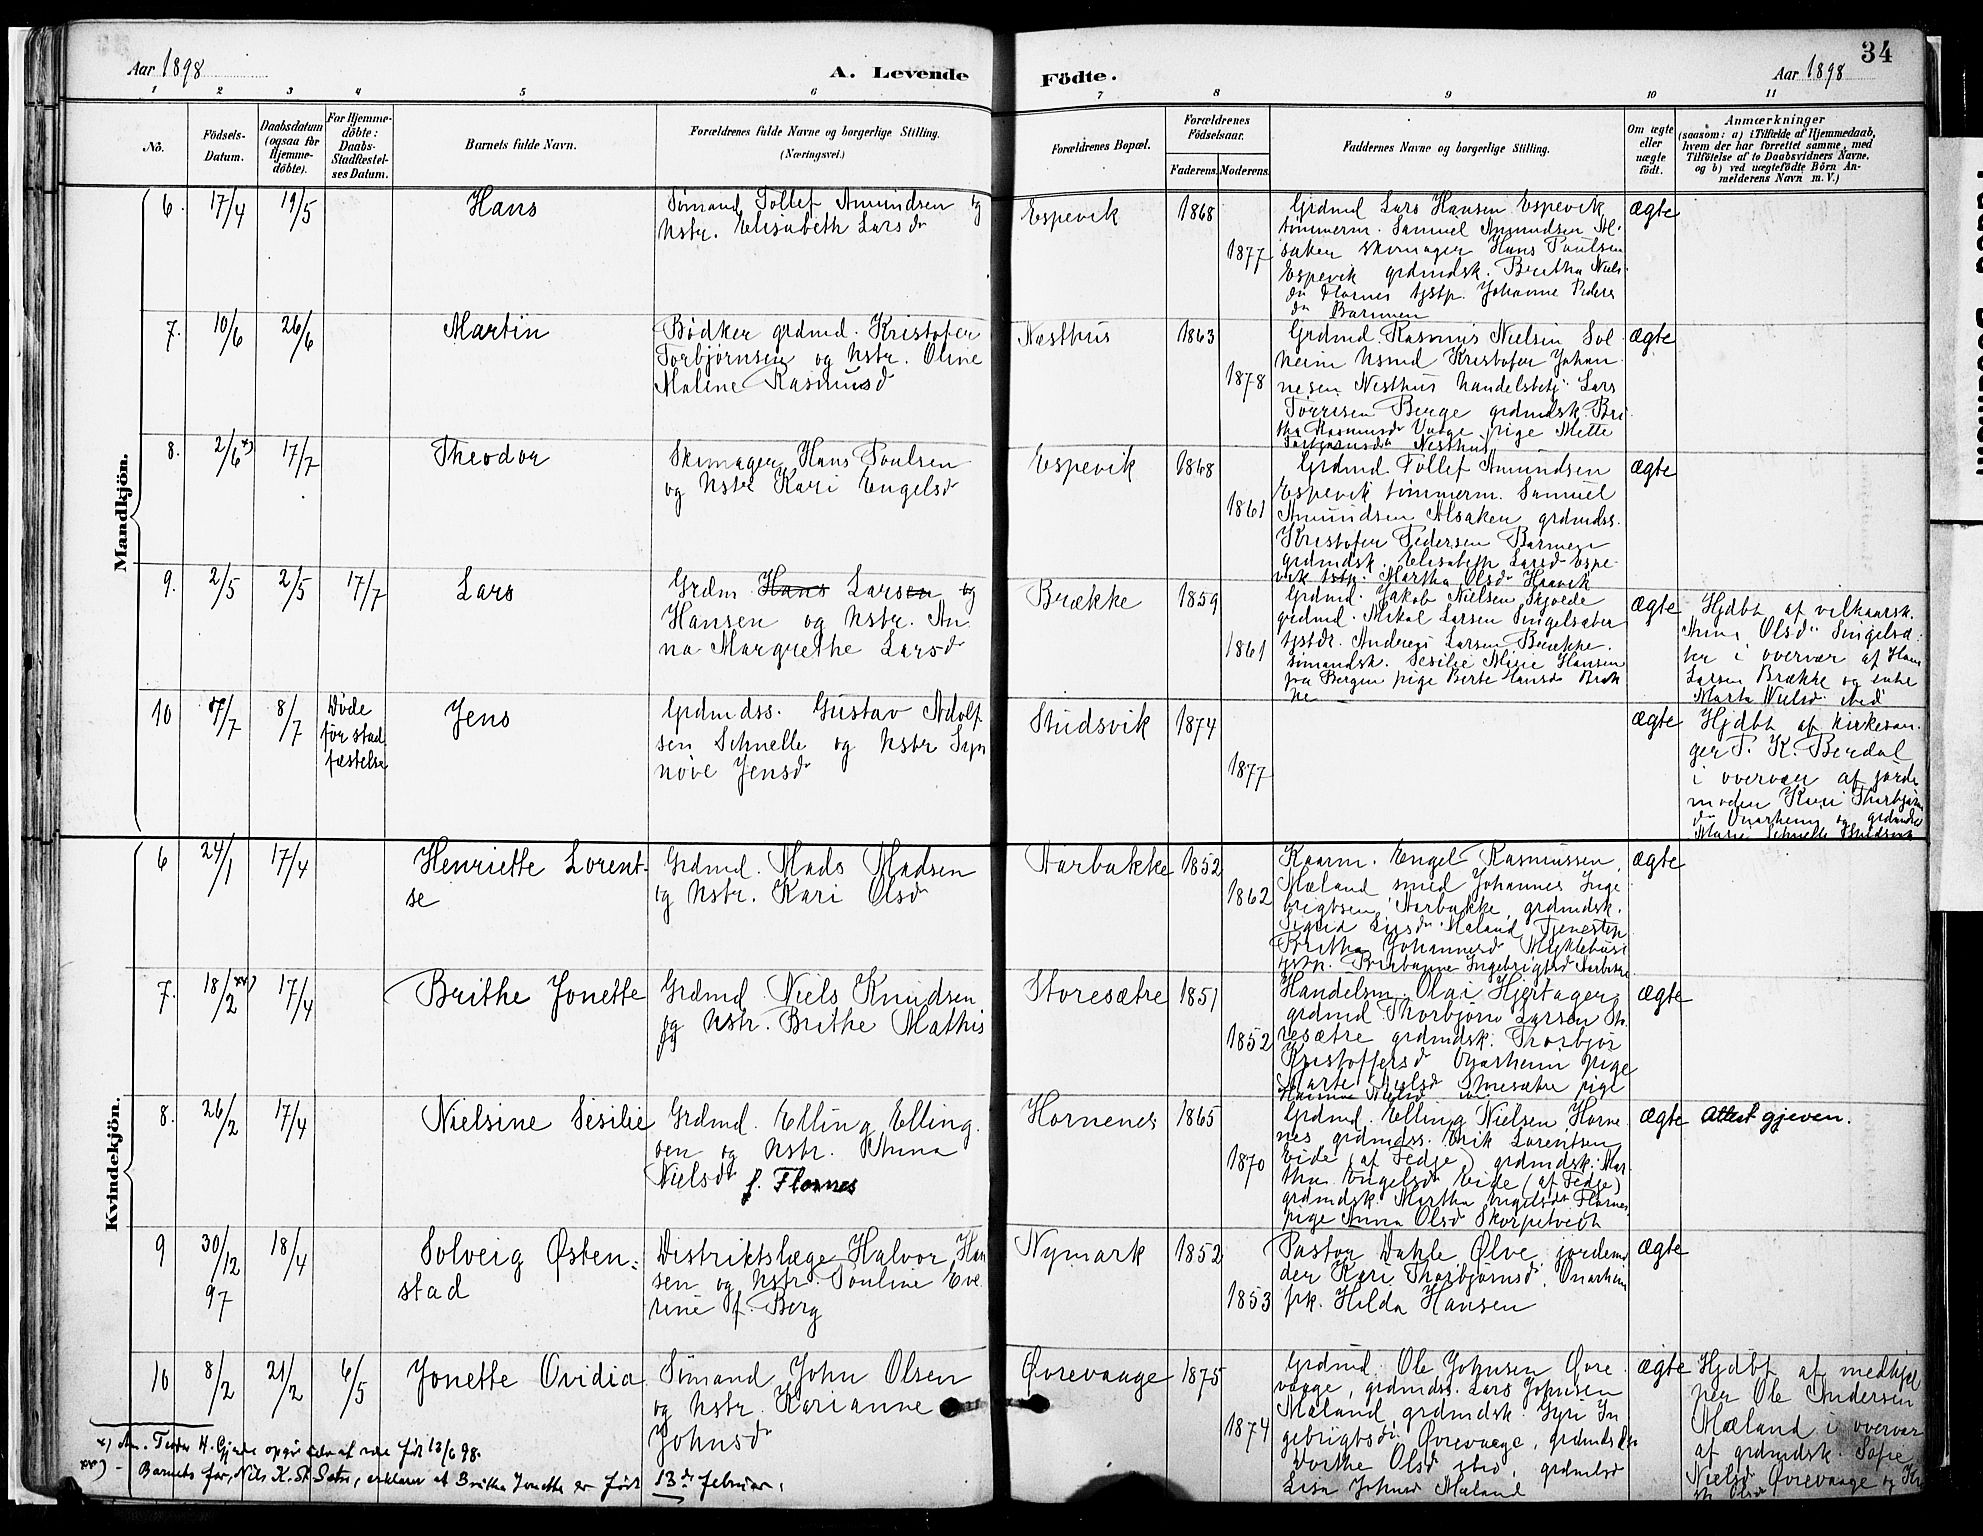 Aar 1898
A. Levende
Födte.
Aar 1898
34
1 2 3 4 5 6 7 8 9 10 11
No.
Födsels-
Datum.
Daabsdatum
(ogsaa for
Hjemme-
döbte).
For Hjemme-
döbte:
Daabs-
Stadfæstel-
ses Datum.
Barnets fulde Navn.
Forældrenes fulde Navne og borgerlige Stilling.
(Næringsvei.)
Forældrenes Bopæl.
Forældrenes
Födselsaar.
Faderens.
Moderens.
Faddernes Navne og borgerlige Stilling.
Om ægte
eller
uægte
födt.
Anmærkninger
(saasom: a) i Tilfælde af Hjemmedaab,
hvem der har forrettet samme, med
Tilföielse af to Daabsvidners Navne.
og b) ved uægtefödte Börn An-
melderens Navn m. V.)
Mandkjön.
6. 17/4 19/5 Hans
Sømand Tollef Amundsen og
hstr. Elisabeth Larsdr
Espevik 1868
1877
Grdmd Lars Hansen Espevik
tømmerm. Samuel Amundsen Al-
saker skomager Hans Poulsen
Espevik grdmdsk. Britha Niels-
dr Flornes tjstp. Johanne Peders
dr Barmen
ægte
7. 10/6 26/6 Martin
Bødker grdmd. Kristofer
Torbjørnsen og hstr. Oline
Maline Rasmusd
Næsthus 1863
1878
Grdmd. Rasmus Nielsen Sol-
heim husmd Kristofer Johan-
nesen Nesthus handelsbetj. Lars
Torrisen Berge grdmdsk. Bri-
tha Rasmusdr Vaage pige Mette
Torbjørnsdr Nesthus
ægte
8. 2/6 x) 17/7 Theodor
Skomager Hans Poulsen
og hstr Kari Engelsdr
Espevik 1868
1861
Grdmd Tollef Amundsen
Espevik tømmerm. Samuel
Amundsen Alsaker grdmdss.
Kristofer Pedersen Barmen
grdmdsk. Elisabeth Larsd Espe-
vik tstp. Martha Olsdr Haavik
ægte
9. 2/5 2/5 17/7 Lars
Grdm. Hans Larsen og
Hansen og hstr. An-
na Margrethe Larsdr
Brække 1859
1861
Grdmd. Jakob Nielsen Skjoede
grdmd. Mikal Larsen Singelsæter
tjstdr. Andreas Larsen Brække.
sømandsk. Sesilie Marie Hansen
fra Bergen pige Berte Hansdr Bræk-
ke
ægte
Hjdbt af vilkaarsk.
Anna Olsdr Singelsæ-
ter i overvær af Hans
Larsen Brække og enke
Marta Nielsd ibid
10 7/7 8/7
Døde
før stad
fæstelse
Jens
Grdmdss. Gustav Adolf-
sen Schnelle og hstr Syn
nøve Jensdr
Studsvik 1874
1877
ægte
Hjdbt af kirkesan-
ger T. K. Berdal
i overvær af jorde
moder Kari Thorbjørns
dr Onarheim og grdmdsk
Marie Schnelle Studsvik
Kvindekjön.
6 24/1 17/4 Henriette Lorent-
se
Grdmd. Mads Madsen
og hstr. Kari Olsdr
Aarbakke 1852
1862
Kaarm. Engel Rasmussen
Mæland smed Johannes Inge
brigtsen Aarbakke, grdmdsk.
Sigrid Larsdr Mæland Tjenestep.
Britha Johannesd Myklebust
ægte
7. 18/2 xx) 17/4 Brithe Jonette
Grdmd. Niels Knudsen
og hstr. Brithe Mathis
Storesætre 1851
1852
Handelsm. Olai Hjertager
grdmd. Thorbjørn Larsen Sto-
resætre grdmdsk. Thorbjør
Kristoffersd Onarheim pige
Marte Nielsdr Storesætre pige
ægte
8. 26/2 17/4 Nielsine Sesilie
Grdmd. Elling Elling-
sen og hstr. Anna
Nielsdr f. Flornes
Hornenes 1865
1870
Grdmd. Elling Nielsen Horne-
nes grdmdss. Erik Lorentsen
Eide (af Fedje) grdmdsk. Mar-
tha Engelsdr Eide (af Fedje)
grdmdsk. Martha Engelsdr Flornes
pige Anna Olsd Skorpetveth
ægte
Attest gjeven.
9 30/12 97 18/4 Solveig Østen-
stad
Distriktslæge Halvor Han
sen og hstr. Pouline Eve
rine f. Berg
Nymark 1852
1853
Pastor Dahle Ølve jordemo
der Kari Thorbjørnsdr. Onarheim
frk. Hilda Hansen
ægte
10 8/2 21/2 6/5 Jonette Ovidia
Sømand John Olsen
og hstr. Karianne
Johnsdr
Øvrevaage 1875
1874
Grdmd. Ole Johnsen Øvre-
vaage, grdmdss. Lars Johnsen
Mæland, grdmdsk. Gyri In
gebrigtsdr Øvrevaage, grdmdsdr
Dorthe Olsd ibid, grdmdsd
Lisa Johnsd Mæland
ægte
Hjdbt af medhjæl
per Ole Andersen
Mæland i overvær
af grdmdsk. Sofie
Nielsdr Øvrevaage og
født 13/6 98.
xx) - Barnets far, Nils K. St. Sætre, erklærer at Britha Jonetta er født 13de februar.